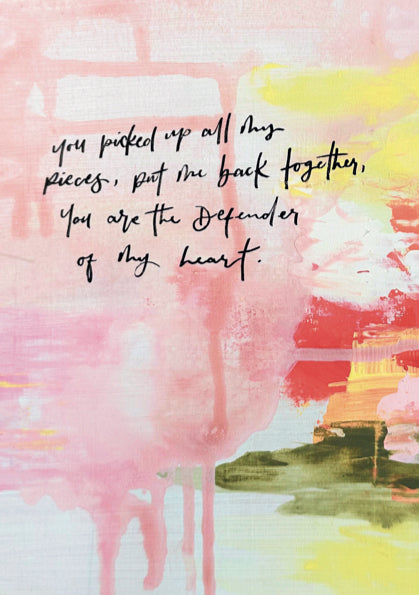 you picked up all my
pieces, put me back together,
You are the Defender
of my heart.